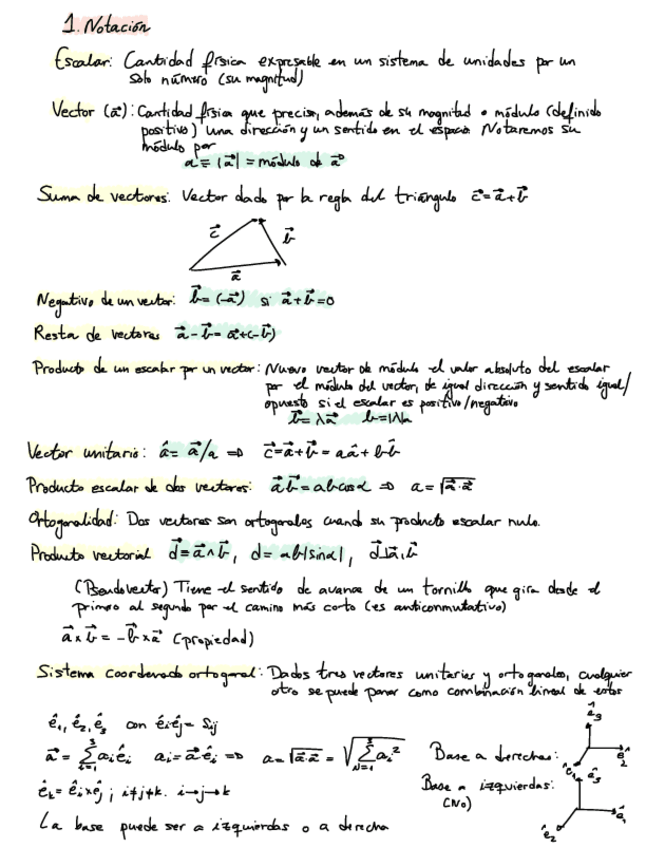 1. Notación
Escalar: Cantidad física expresable en un sistema de unidades por un
solo número (su magnitud)
Vector (a⃗): Cantidad física que precisa, además de su magnitud o módulo (definido
positivo) una dirección y un sentido en el espacio Notaremos su
módulo por
a ≡ |a⃗| = módulo de a⃗
Suma de vectores: Vector dado por la regla del triángulo c⃗=a⃗+b⃗
c⃗ b⃗
a⃗
Negativo de un vector: b⃗=(-a⃗) si a⃗+b⃗=0
Resta de vectores a⃗-b⃗= a⃗+(-b⃗)
Producto de un escalar por un vector: Nuevo vector de módulo el valor absoluto del escalar
por el módulo del vector, de igual dirección y sentido igual/
opuesto si el escalar es positivo/negativo
b⃗=λa⃗ b=|λ|a
Vector unitario: â= a⃗/a ⇒ c⃗=a⃗+b⃗= aâ+bb̂
Producto escalar de dos vectores: a⃗b⃗=abcosα ⇒ a=√a⃗·a⃗
Ortogonalidad: Dos vectores son ortogonales cuando su producto escalar nulo.
Producto vectorial d⃗=a⃗∧b⃗, d=ab|sinα|, d⃗⊥a⃗,b⃗
(Pseudovector) Tiene el sentido de avance de un tornillo que gira desde el
primero al segundo por el camino más corto (es anticonmutativo)
a⃗×b⃗=-b⃗×a⃗ (propiedad)
Sistema coordenado ortogonal: Dados tres vectores unitarios y ortogonales, cualquier
otro se puede poner como combinación lineal de estos
ê₁, ê₂, ê₃ con êᵢêⱼ= δᵢⱼ
a⃗= ∑³ᵢ₌₁ aᵢêᵢ aᵢ=a⃗êᵢ ⇒ a=√a⃗a⃗ = √∑³ₙ₌₁ aᵢ² Base a derechas: ê₃ ê₂ ê₁
êₖ= êᵢ×êⱼ ; i≠j≠k. i→j→k Base a izquierdas: ê₃ ê₁ ê₂
(No)
La base puede ser a izquierdas o a derecha